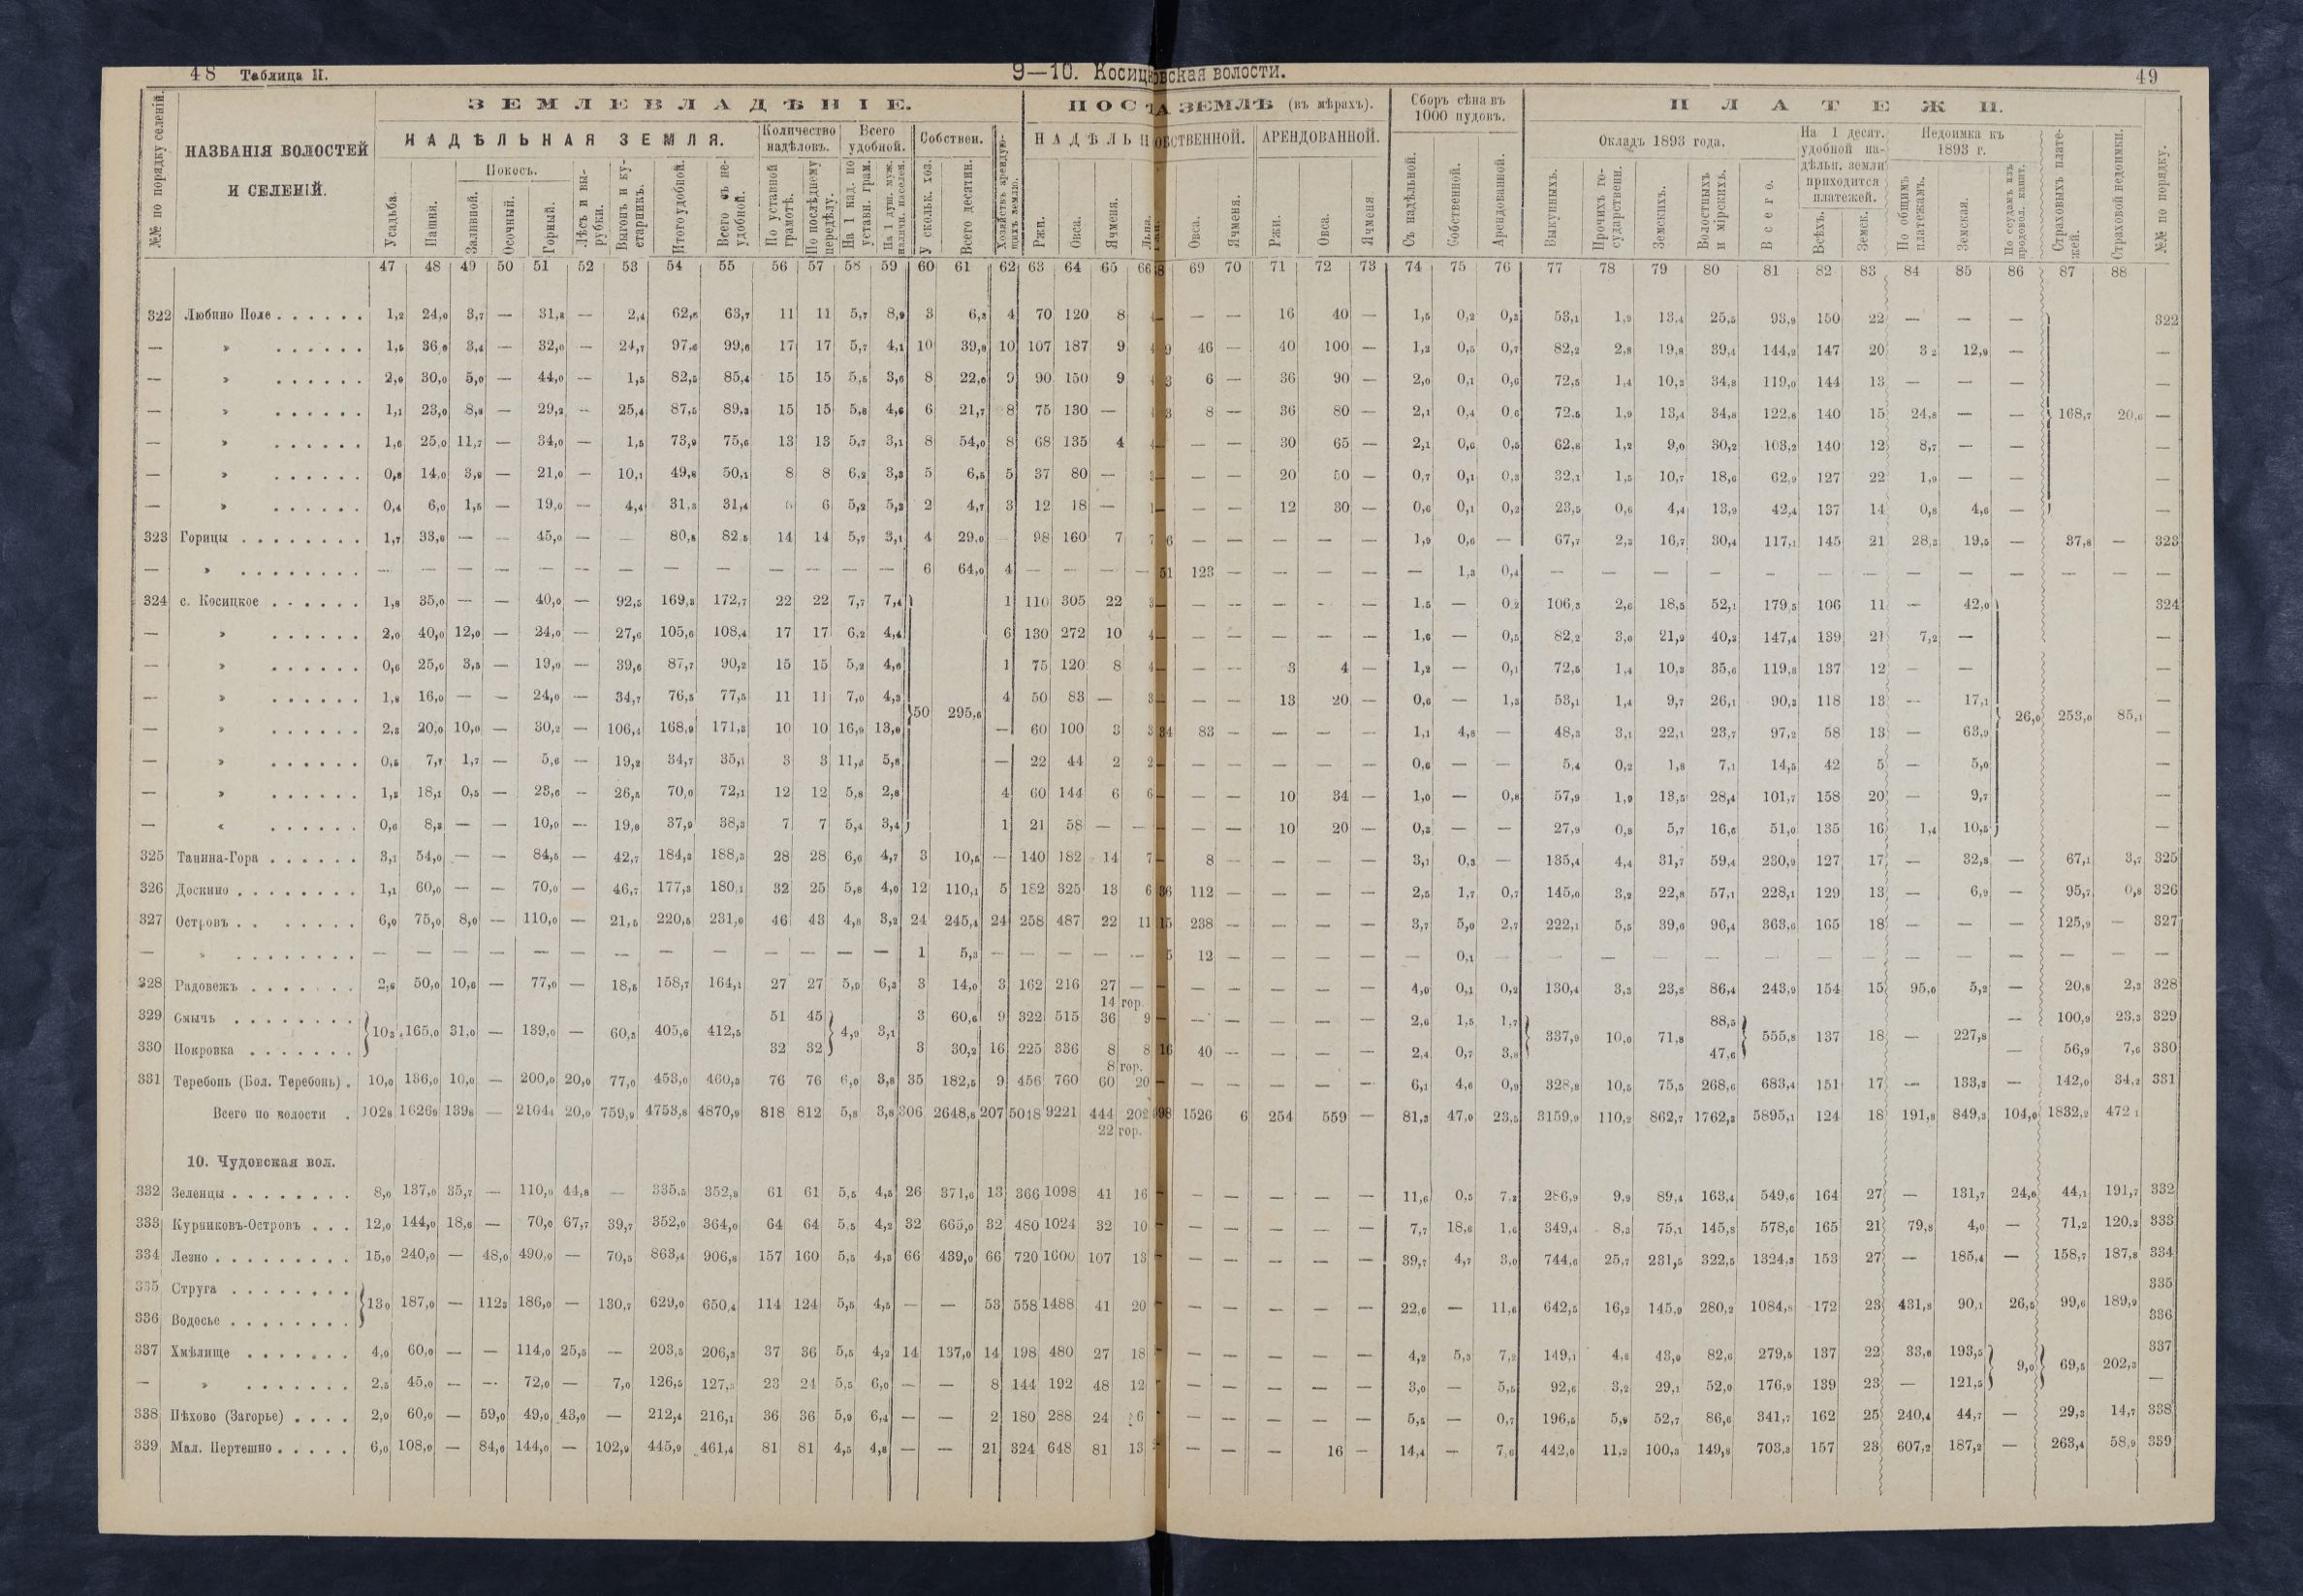 48 Таблица II.
9—10. Косицковская волости.
49
№№ по порядку селеній.
НАЗВАНІЯ ВОЛОСТЕЙ И СЕЛЕНІЙ.
ЗЕМЛЕВЛАДѢНІЕ.
НАДѢЛЬНАЯ ЗЕМЛЯ.
Количество надѣловъ.
Всего удобной.
Собствен.
Усадьба. Пашня. Покосъ. Заливной. Осочный. Горный. Лѣсъ и вырубки. Выгонъ и кустарникъ. Итого удобной. Всего съ неудобной.
По уставной грамотѣ. По послѣднему передѣлу. На 1 над. по уставн. грам. На 1 душ. муж. наличн. населен. У скольк. хоз. Всего десятин. Хозяйствъ арендующихъ землю.
НАДѢЛЬН
Ржи. Овса. Ячменя. Льна.
ЗЕМЛѢ (въ мѣрахъ).
ОБСТВЕННОЙ. АРЕНДОВАННОЙ.
Овса. Ячменя. Ржи. Овса. Ячменя
Сборъ сѣна въ 1000 пудовъ.
Съ надѣльной. Собственной. Арендованной.
ПЛАТЕЖИ.
Окладъ 1893 года.
Выкупныхъ. Прочихъ государственн. Земскихъ. Волостныхъ и мірскихъ. Всего.
На 1 десят. удобной надѣльн. земли приходится платежей.
Всѣхъ. Земск.
Недоимка къ 1893 г.
По общимъ платежамъ. Земская. По ссудамъ изъ продовол. капит.
Страховыхъ платежей. Страховой недоимки. №№ по порядку.
47 48 49 50 51 52 53 54 55 56 57 58 59 60 61 62 63 64 65 66 69 70 71 72 73 74 75 76 77 78 79 80 81 82 83 84 85 86 87 88
322 Любино Поле 1,2 24,0 3,7 — 31,8 — 2,4 62,6 63,7 11 11 5,7 8,9 3 6,3 4 70 120 8 — — 16 40 — 1,5 0,2 0,3 53,1 1,9 13,4 25,5 93,9 150 22 — — — 322
— » 1,5 36,0 3,4 — 32,0 — 24,7 97,6 99,6 17 17 5,7 4,1 10 39,8 10 107 187 9 46 — 40 100 — 1,2 0,5 0,7 82,2 2,8 19,8 39,4 144,2 147 20 3,2 12,9 — —
— » 2,0 30,0 5,0 — 44,0 — 1,5 82,5 85,4 15 15 5,5 3,6 8 22,6 9 90 150 9 6 — 36 90 — 2,0 0,1 0,6 72,5 1,4 10,3 34,8 119,0 144 13 — — — —
— » 1,1 23,0 8,8 — 29,2 — 25,4 87,5 89,3 15 15 5,8 4,6 6 21,7 8 75 130 — 8 — 36 80 — 2,1 0,4 0,6 72,5 1,9 13,4 34,8 122,6 140 15 24,8 — — 168,7 20,6 —
— » 1,6 25,0 11,7 — 34,0 — 1,5 73,9 75,6 13 13 5,7 3,1 8 54,0 8 68 135 4 — — 30 65 — 2,1 0,6 0,5 62,8 1,2 9,0 30,2 103,2 140 12 8,7 — — —
— » 0,8 14,0 3,9 — 21,0 — 10,1 49,8 50,1 8 8 6,2 3,3 5 6,5 5 37 80 — — — 20 50 — 0,7 0,1 0,3 32,1 1,5 10,7 18,6 62,9 127 22 1,9 — — —
— » 0,4 6,0 1,5 — 19,0 — 4,4 31,3 31,4 6 6 5,2 5,2 2 4,7 3 12 18 — — — 12 30 — 0,6 0,1 0,2 23,5 0,6 4,4 13,9 42,4 137 14 0,8 4,6 — —
323 Горицы 1,7 33,0 — — 45,0 — — 80,8 82,5 14 14 5,7 3,1 4 29,0 — 98 160 7 7 — — — — — 1,9 0,6 — 67,7 2,3 16,7 30,4 117,1 145 21 28,3 19,5 — 37,8 — 323
— » — — — — — — — — — — — — — 6 64,0 4 — — — — 51 123 — — — — — 1,3 0,4 — — — — — — — — — — — — —
324 с. Косицкое 1,8 35,0 — — 40,0 — 92,5 169,3 172,7 22 22 7,7 7,4 1 110 305 22 — — — — — 1,5 — 0,2 106,3 2,6 18,5 52,1 179,5 106 11 — 42,0 324
— » 2,0 40,0 12,0 — 24,0 — 27,6 105,6 108,4 17 17 6,2 4,4 6 130 272 10 — — — — — 1,6 — 0,5 82,2 3,0 21,9 40,3 147,4 139 21 7,2 — —
— » 0,6 25,0 3,5 — 19,0 — 39,6 87,7 90,2 15 15 5,2 4,6 1 75 120 8 — — 3 4 — 1,2 — 0,1 72,5 1,4 10,3 35,6 119,8 137 12 — — —
— » 1,8 16,0 — — 24,0 — 34,7 76,5 77,5 11 11 7,0 4,3 4 50 83 — — — 13 20 — 0,6 — 1,3 53,1 1,4 9,7 26,1 90,3 118 13 — 17,1 —
50 295,6 26,0 253,0 85,1
— » 2,3 20,0 10,0 — 30,2 — 106,4 168,9 171,3 10 10 16,9 13,0 — 60 100 3 3 34 83 — — — — 1,1 4,8 — 48,3 3,1 22,1 23,7 97,2 58 13 — 63,9 —
— » 0,5 7,7 1,7 — 5,6 — 19,2 34,7 35,1 3 3 11,6 5,8 — 22 44 2 2 — — — — — 0,6 — — 5,4 0,2 1,8 7,1 14,5 42 5 — 5,0 —
— » 1,3 18,1 0,5 — 23,6 — 26,5 70,0 72,1 12 12 5,8 2,8 4 60 144 6 6 — — 10 34 — 1,0 — 0,8 57,9 1,9 13,5 28,4 101,7 158 20 — 9,7 —
— « 0,6 8,3 — — 10,0 — 19,0 37,9 38,3 7 7 5,4 3,4 1 21 58 — — — — 10 20 — 0,3 — — 27,9 0,8 5,7 16,6 51,0 135 16 1,4 10,5 —
325 Танина-Гора 3,1 54,0 — — 84,5 — 42,7 184,3 188,3 28 28 6,6 4,7 3 10,5 — 140 182 14 7 8 — — — — 3,1 0,3 — 135,4 4,4 31,7 59,4 230,9 127 17 — 32,8 — 67,1 3,7 325
326 Доскино 1,1 60,0 — — 70,0 — 46,7 177,8 180,1 32 25 5,8 4,0 12 110,1 5 182 325 13 6 36 112 — — — — 2,5 1,7 0,7 145,0 3,2 22,8 57,1 228,1 129 13 — 6,9 — 95,7 0,8 326
327 Островъ 6,0 75,0 8,0 — 110,0 — 21,5 220,5 231,0 46 43 4,8 3,2 24 245,4 24 258 487 22 11 15 238 — — — — 3,7 5,0 2,7 222,1 5,5 39,6 96,4 363,6 165 18 — — — 125,9 — 327
— » — — — — — — — — — — — — — 1 5,3 — — — — — 5 12 — — — — — 0,1 — — — — — — — — — — — — —
328 Радовежъ 2,6 50,0 10,6 — 77,0 — 18,5 158,7 164,1 27 27 5,9 6,3 3 14,0 3 162 216 27 — — — — — — 4,0 0,1 0,2 130,4 3,3 23,8 86,4 243,9 154 15 95,0 5,2 — 20,8 2,3 328
14 гор.
329 Смычь 51 45 3 60,6 9 322 515 36 9 — — — — — 2,6 1,5 1,7 88,5 — 100,9 23,3 329
10,3 165,0 31,0 — 139,0 — 60,3 405,6 412,5 4,9 3,1 337,9 10,0 71,8 555,8 137 18 — 227,8
330 Покровка 32 32 3 30,2 16 225 336 8 8 16 40 — — — — 2,4 0,7 3,8 47,6 — 56,9 7,6 330
8 гор.
331 Теребонь (Бол. Теребонь) 10,0 136,0 10,0 — 200,0 20,0 77,0 453,0 460,3 76 76 6,0 3,8 35 182,5 9 456 760 60 20 — — — — — 6,1 4,6 0,9 328,8 10,5 75,5 268,6 683,4 151 17 — 133,3 — 142,0 34,2 331
Всего по волости 102,8 1626,9 139,8 — 2104,4 20,0 759,9 4753,8 4870,9 818 812 5,8 3,8 306 2648,8 207 5018 9221 444 202 1526 6 254 559 — 81,3 47,0 23,5 3159,9 110,2 862,7 1762,3 5895,1 124 18 191,8 849,3 104,0 1832,2 472,1
22 гор.
10. Чудовская вол.
332 Зеленцы 8,0 137,0 35,7 — 110,0 44,8 — 335,5 352,8 61 61 5,5 4,5 26 371,6 13 366 1098 41 16 — — — — — 11,6 0,5 7,3 286,9 9,9 89,4 163,4 549,6 164 27 — 131,7 24,6 44,1 191,7 332
333 Курниковъ-Островъ 12,0 144,0 18,6 — 70,0 67,7 39,7 352,0 364,0 64 64 5,5 4,2 32 665,0 32 480 1024 32 10 — — — — — 7,7 18,6 1,6 349,4 8,3 75,1 145,8 578,6 165 21 79,8 4,0 — 71,2 120,3 333
334 Лезно 15,0 240,0 — 48,0 490,0 — 70,5 863,4 906,8 157 160 5,5 4,3 66 439,0 66 720 1600 107 13 — — — — — 39,7 4,7 3,0 744,6 25,7 231,5 322,5 1324,3 153 27 — 185,4 — 158,7 187,8 334
335 Струга 335
13,0 187,0 — 112,3 186,0 — 130,7 629,0 650,4 114 124 5,5 4,5 — — 53 558 1488 41 20 — — — — — 22,6 — 11,6 642,5 16,2 145,9 280,2 1084,8 172 23 431,8 90,1 26,5 99,6 189,9
336 Водосье 336
337 Хмѣлище 4,0 60,0 — — 114,0 25,5 — 203,5 206,3 37 36 5,5 4,2 14 137,0 14 198 480 27 18 — — — — — 4,2 5,3 7,2 149,1 4,8 43,0 82,6 279,5 137 22 33,6 193,5 337
9,0 69,5 202,3
— » 2,5 45,0 — — 72,0 — 7,0 126,5 127,5 23 24 5,5 6,0 — — 8 144 192 48 12 — — — — — 3,0 — 5,5 92,6 3,2 29,1 52,0 176,9 139 23 — 121,5 —
338 Пѣхово (Загорье) 2,0 60,0 — 59,0 49,0 43,0 — 212,4 216,1 36 36 5,9 6,4 — — 2 180 288 24 6 — — — — — 5,5 — 0,7 196,5 5,9 52,7 86,6 341,7 162 25 240,4 44,7 — 29,3 14,7 338
339 Мал. Пертешно 6,0 108,0 — 84,6 144,0 — 102,9 445,9 461,4 81 81 4,5 4,8 — — 21 324 648 81 13 — — — 16 — 14,4 — 7,6 442,0 11,2 100,3 149,8 703,3 157 23 607,2 187,2 — 263,4 58,9 339